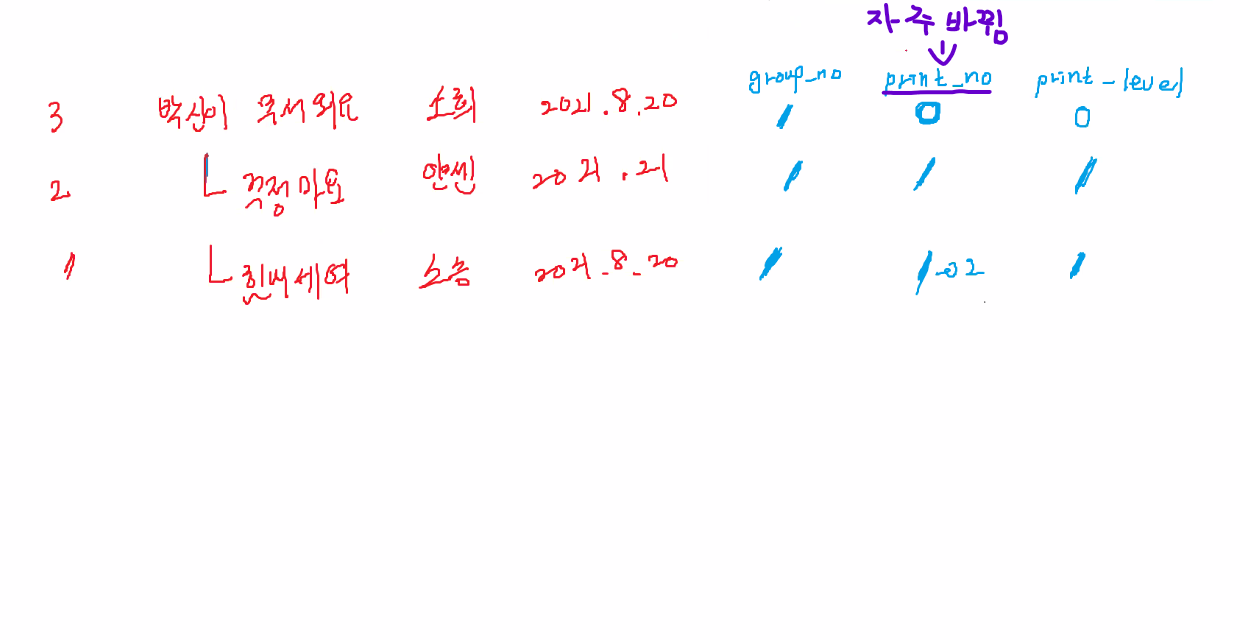 자주 바뀜
group_no print_no print_level
3 박산이 무서워요 소희 2021.8.20 1 0 0
2 걱정마요 안센 2021.21 1 1 1
1 힘내세여 소숨 2021.8.20 1 1-02 1